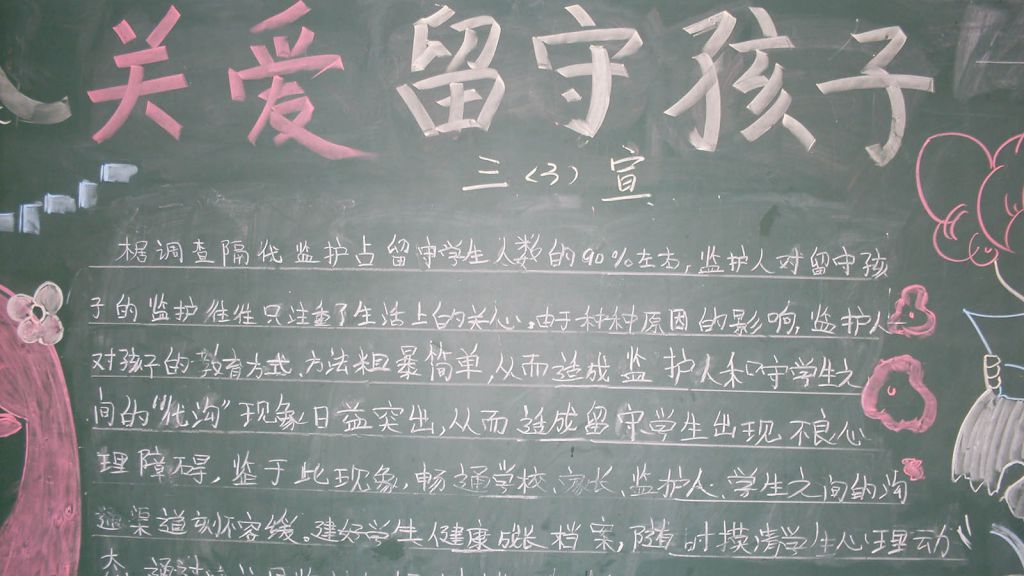 关爱留守孩子
三(3)宣
根据调查隔代监护占留守学生人数的90%左右,监护人对留守孩
子的监护往往只注重了生活上的关心。由于种种原因的影响,监护人
对孩子的教育方式、方法粗暴简单,从而造成监护人和守学生之
间的"代沟"现象日益突出,从而造成留守学生出现不良心
理障碍,鉴于此现象,畅通学校、家长、监护人、学生之间的沟
通渠道刻不容缓。建好学生健康成长档案,随时摸清学生心理动
态,通过